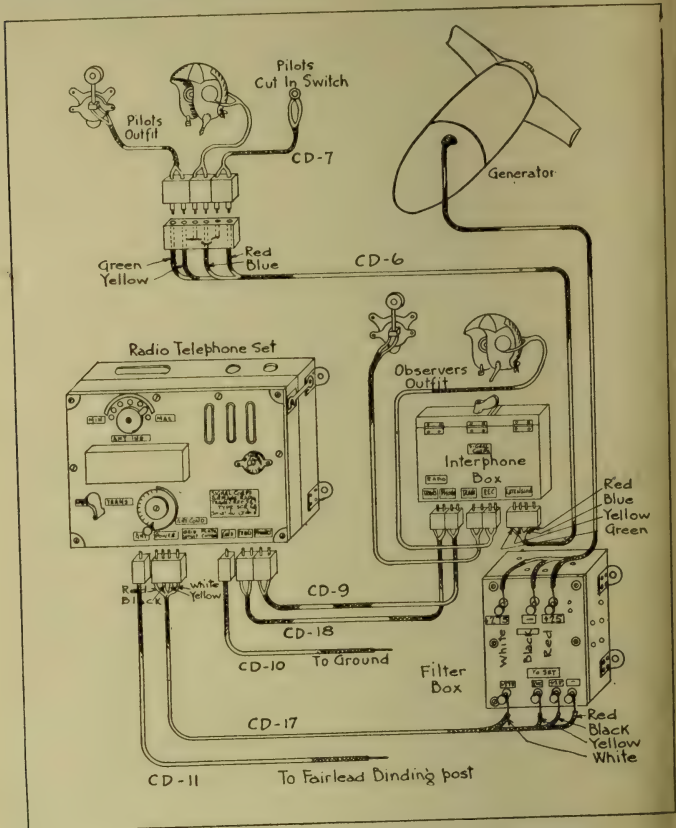 Pilots
Outfit
Pilots
Cut In Switch
CD-7
Generator
Green
Yellow
Red
Blue
CD-6
Radio Telephone Set
Observers
Outfit
MIN
MAX
TRANS.
Interphone
Box
Red
Blue
Yellow
Green
Red
Black
White
Yellow
CD-9
CD-18
CD-10
To Ground
+275
-
+25
White
Black
Red
To SET
Filter
Box
CD-17
Red
Black
Yellow
White
CD-11
To Fairlead Binding post